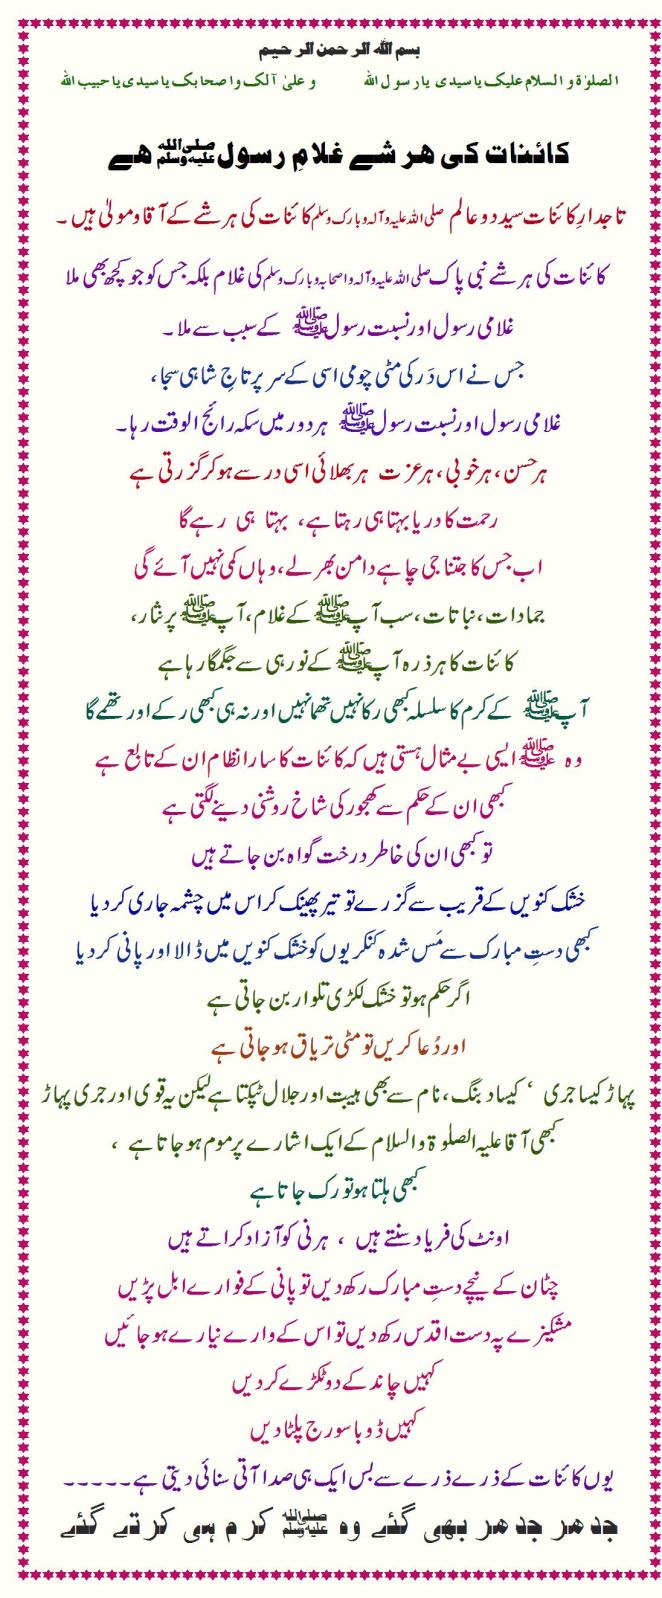 بسم اللہ الرحمن الرحیم
الصلوٰۃ و السلام علیک یا سیدی یا رسول اللہ و علیٰ آلک و اصحابک یا سیدی یا حبیب اللہ
کائنات کی ہر شے غلامِ رسول ﷺ ہے
تاجدارِ کائنات سید دو عالم صلی اللہ علیہ وآلہ و بارک وسلم کائنات کی ہر شے کے آقا و مولیٰ ہیں ۔
کائنات کی ہر شے نبی پاک صلی اللہ علیہ وآلہ واصحابہ وبارک وسلم کی غلام بلکہ جس کو جو کچھ بھی ملا
غلامی رسول اور نسبت رسول ﷺ کے سبب سے ملا ۔
جس نے اس دَر کی مٹی چومی اسی کے سر پر تاجِ شاہی سجا،
غلامی رسول اور نسبت رسول ﷺ ہر دور میں سکہ رائج الوقت رہا۔
ہر حسن، ہر خوبی، ہر عزت ہر بھلائی اسی در سے ہو کر گزرتی ہے
رحمت کا دریا بہتا ہی رہتا ہے، بہتا ہی رہے گا
اب جس کا جتنا جی چاہے دامن بھر لے، وہاں کمی نہیں آئے گی
جمادات، نباتات، سب آپ ﷺ کے غلام، آپ ﷺ پر نثار،
کائنات کا ہر ذرہ آپ ﷺ کے نور ہی سے جگمگا رہا ہے
آپ ﷺ کے کرم کا سلسلہ کبھی رکا نہیں تھما نہیں اور نہ ہی کبھی رکے اور تھمے گا
وہ ﷺ ایسی بے مثال ہستی ہیں کہ کائنات کا سارا نظام ان کے تابع ہے
کبھی ان کے حکم سے کھجور کی شاخ روشنی دینے لگتی ہے
تو کبھی ان کی خاطر درخت گواہ بن جاتے ہیں
خشک کنویں کے قریب سے گزرے تو تیر پھینک کر اس میں چشمہ جاری کر دیا
کبھی دستِ مبارک سے مَس شدہ کنکریوں کو خشک کنویں میں ڈالا اور پانی کر دیا
اگر حکم ہو تو خشک لکڑی تلوار بن جاتی ہے
اور دُعا کریں تو مٹی تریاق ہو جاتی ہے
پہاڑ کیسا جری ‘ کیسا دبنگ، نام سے بھی ہیبت اور جلال ٹپکتا ہے لیکن یہ قوی اور جری پہاڑ
کبھی آقا علیہ الصلوٰۃ والسلام کے ایک اشارے پر موم ہو جاتا ہے ،
کبھی ہلتا ہو تو رک جاتا ہے
اونٹ کی فریاد سنتے ہیں ، ہرنی کو آزاد کراتے ہیں
چٹان کے نیچے دستِ مبارک رکھ دیں تو پانی کے فوارے ابل پڑیں
مشکیزے پہ دست اقدس رکھ دیں تو اس کے وارے نیارے ہو جائیں
کہیں چاند کے دو ٹکڑے کر دیں
کہیں ڈوبا سورج پلٹا دیں
یوں کائنات کے ذرے ذرے سے بس ایک ہی صدا آتی سنائی دیتی ہے۔۔۔۔۔
جدھر جدھر بھی گئے وہ ﷺ کرم ہی کرتے گئے